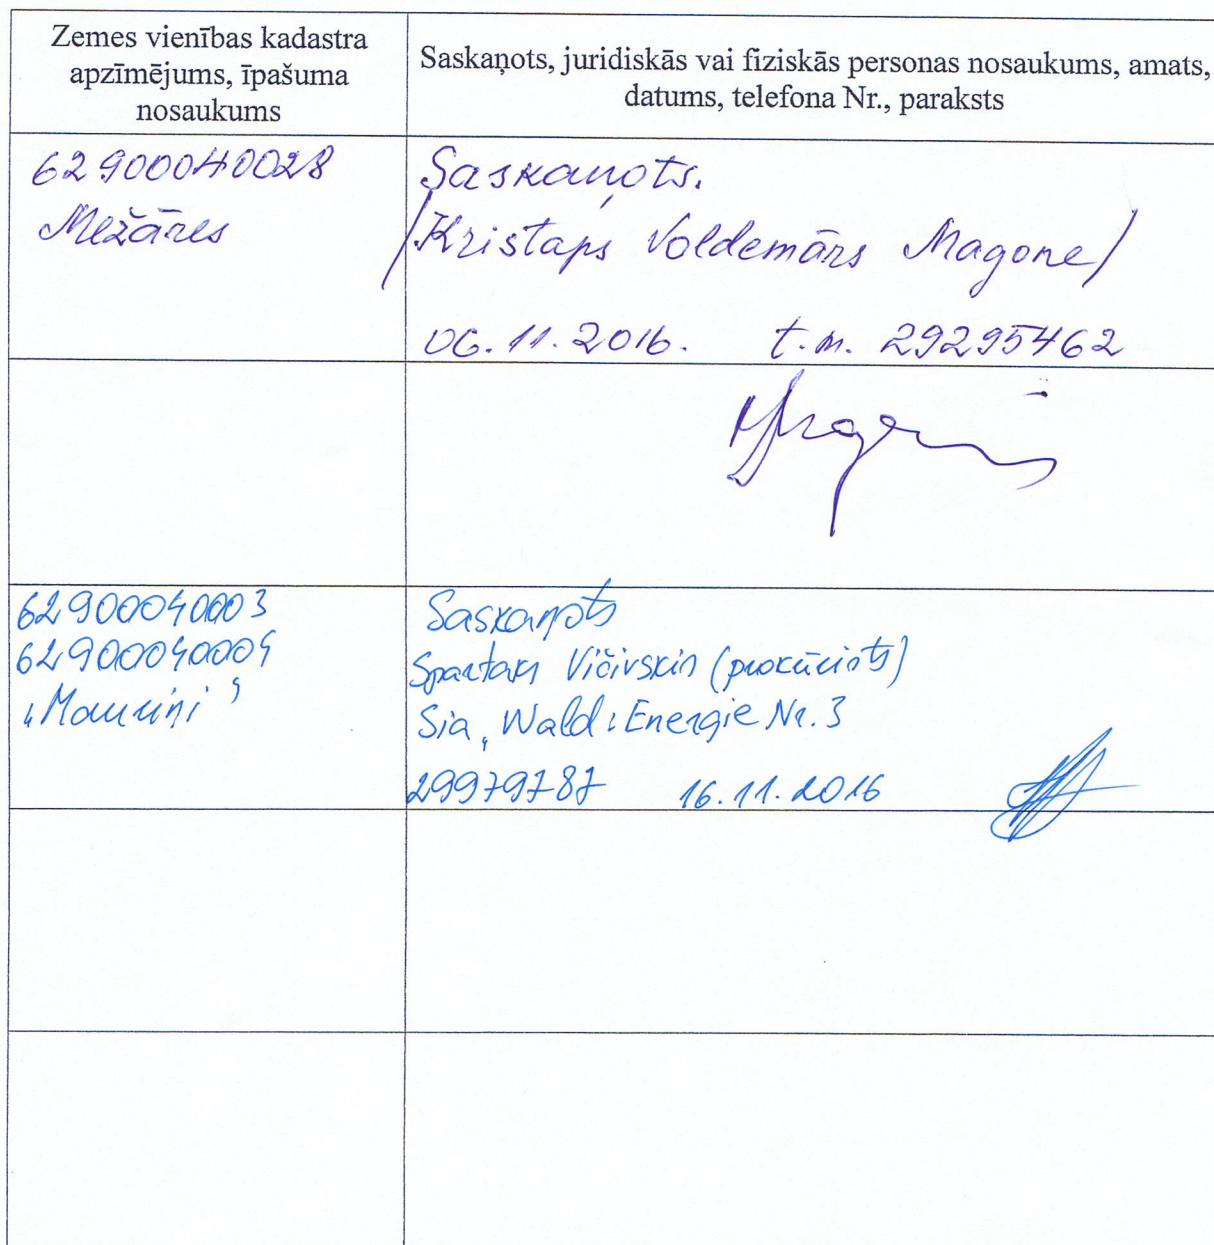 Zemes vienības kadastra
apzīmējums, īpašuma
nosaukums
Saskaņots, juridiskās vai fiziskās personas nosaukums, amats,
datums, telefona Nr., paraksts
62900040028
Mežāres
Saskaņots.
/Kristaps Voldemārs Magone/
06.11.2016. t.m. 29295462
62900040003
62900040004
Saskaņots
Spartaks Vičivskin (prokūrists)
Sia "Wald: Energie Nr. 3
29979787 16.11.2016